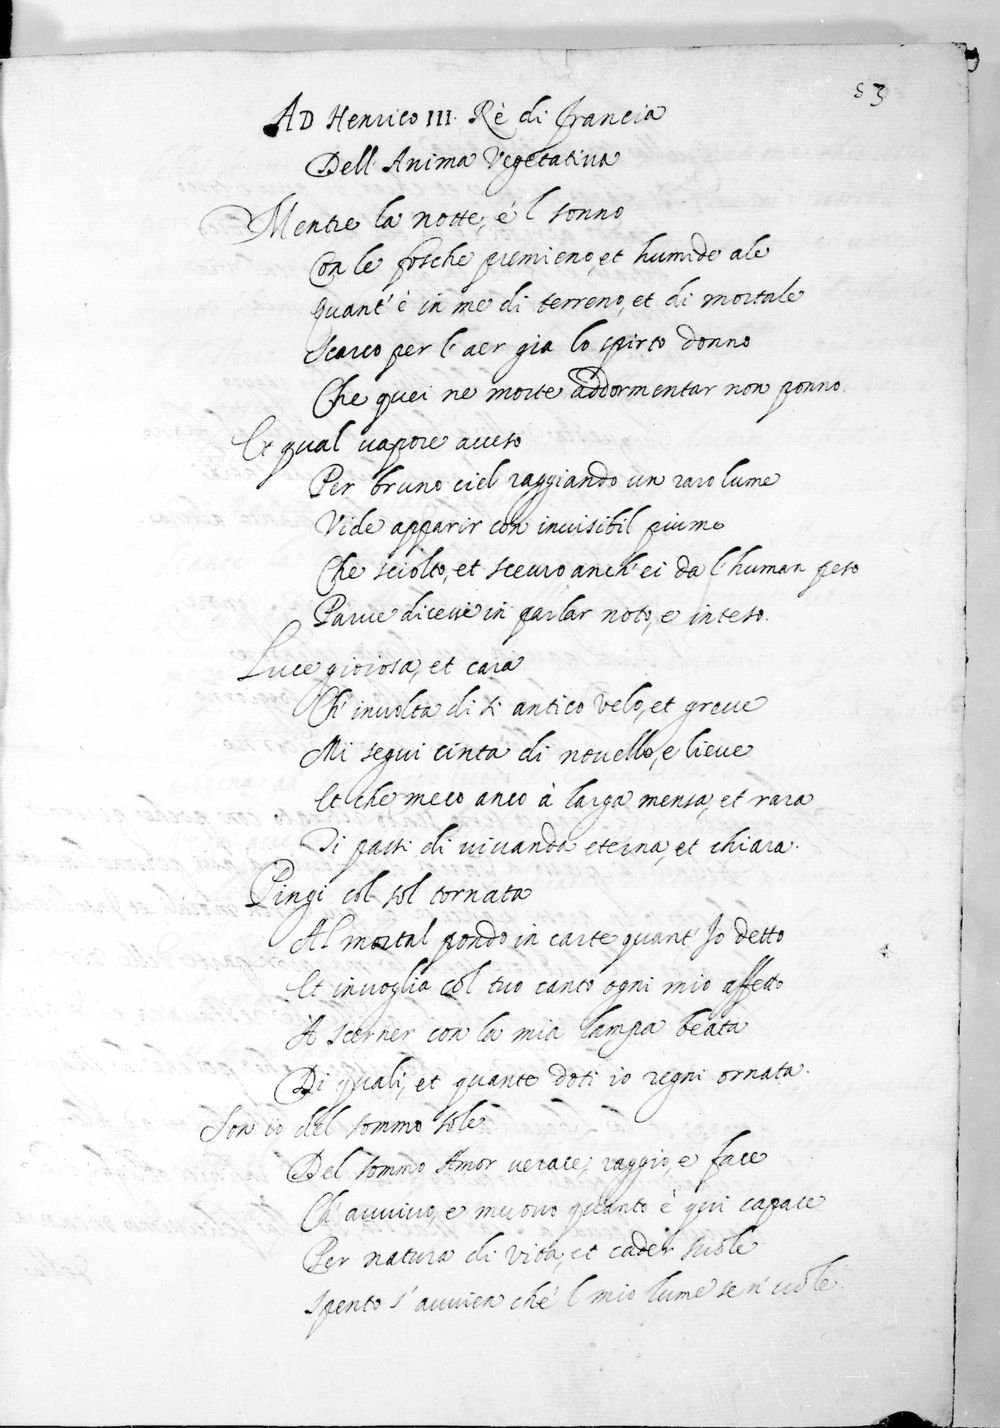 53
AD Henrico III. Rè di Francia
Dell'Anima Vegetativa
Mentre la notte, e 'l sonno
Con le fosche premieno, et humide ale
Quant' è in me di terreno, et di mortale
Scarco per l'aer gia lo spirto donno
Che quei ne morte addormentar non ponno.
Et qual vapore acceso
Per bruno ciel raggiando un raro lume
Vide apparir con invisibil piume
Che sciolto, et scevro anch'ei da l'human peso
Parve dicesse in parlar noto, e inteso.
Luce gioiosa, et cara
Ch' involta di si antico velo, et greve
Mi segui cinta di novello, e lieve
Et che meco anco à larga mensa, et rara
Ti pasti di vivanda eterna, et chiara.
Pingi col sol tornata
Al mortal pondo in carte quant' Io detto
Et invoglia col tuo canto ogni mio affetto
A scerner con la mia lampa beata
Di quali, et quante doti io regni ornata.
Son io del sommo sole
Del sommo Amor verace, raggio, e face
Ch' avvivo, e muovo quanto è qui capace
Per natura di vita, et cader suole
Spento s' avvien che 'l mio lume se n' vole.